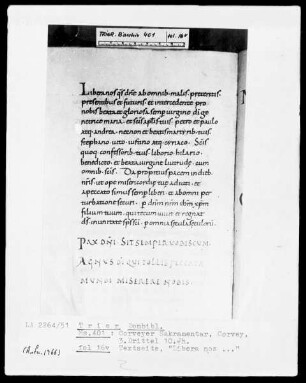 TRIER, Bantus 401 Bl. 16v
Libera nos qs dne ab omnib malis preteritis
presentibus et futuris et intercedente pro
nobis beata et gloriosa semp uirgine di ge
netrice maria et scis aplis tuis petro et paulo
atq andrea nec non et beatis martyrib tuis
stephano uito iustino atq cyriaco
quoq confessorib tuis liborio hilario
benedicto et beata uirgine liutrude cum
omnib scis Da propitius pacem in dieb
nris ut ope misericordię tuę adiuti et a
peccato simus semp liberi et ab omni per
turbatione securi p dnm nrm ihm xpm
filium tuum qui tecum uiuit et regnat
ds in unitate sps sci p omnia scula sculorū
PAX DNI SIT SEMPER VOBISCUM
AGNUS DI QUI TOLLIS PECCATA
MUNDI MISERERE NOBIS
LA 2264/31 Trier, Bantbibl.
Hs. 401: Corveyer Sakramentar, Corvey,
3. Drittel 10. Jh.
fol 16v Textseite, "Libera nos ..."
(1966)